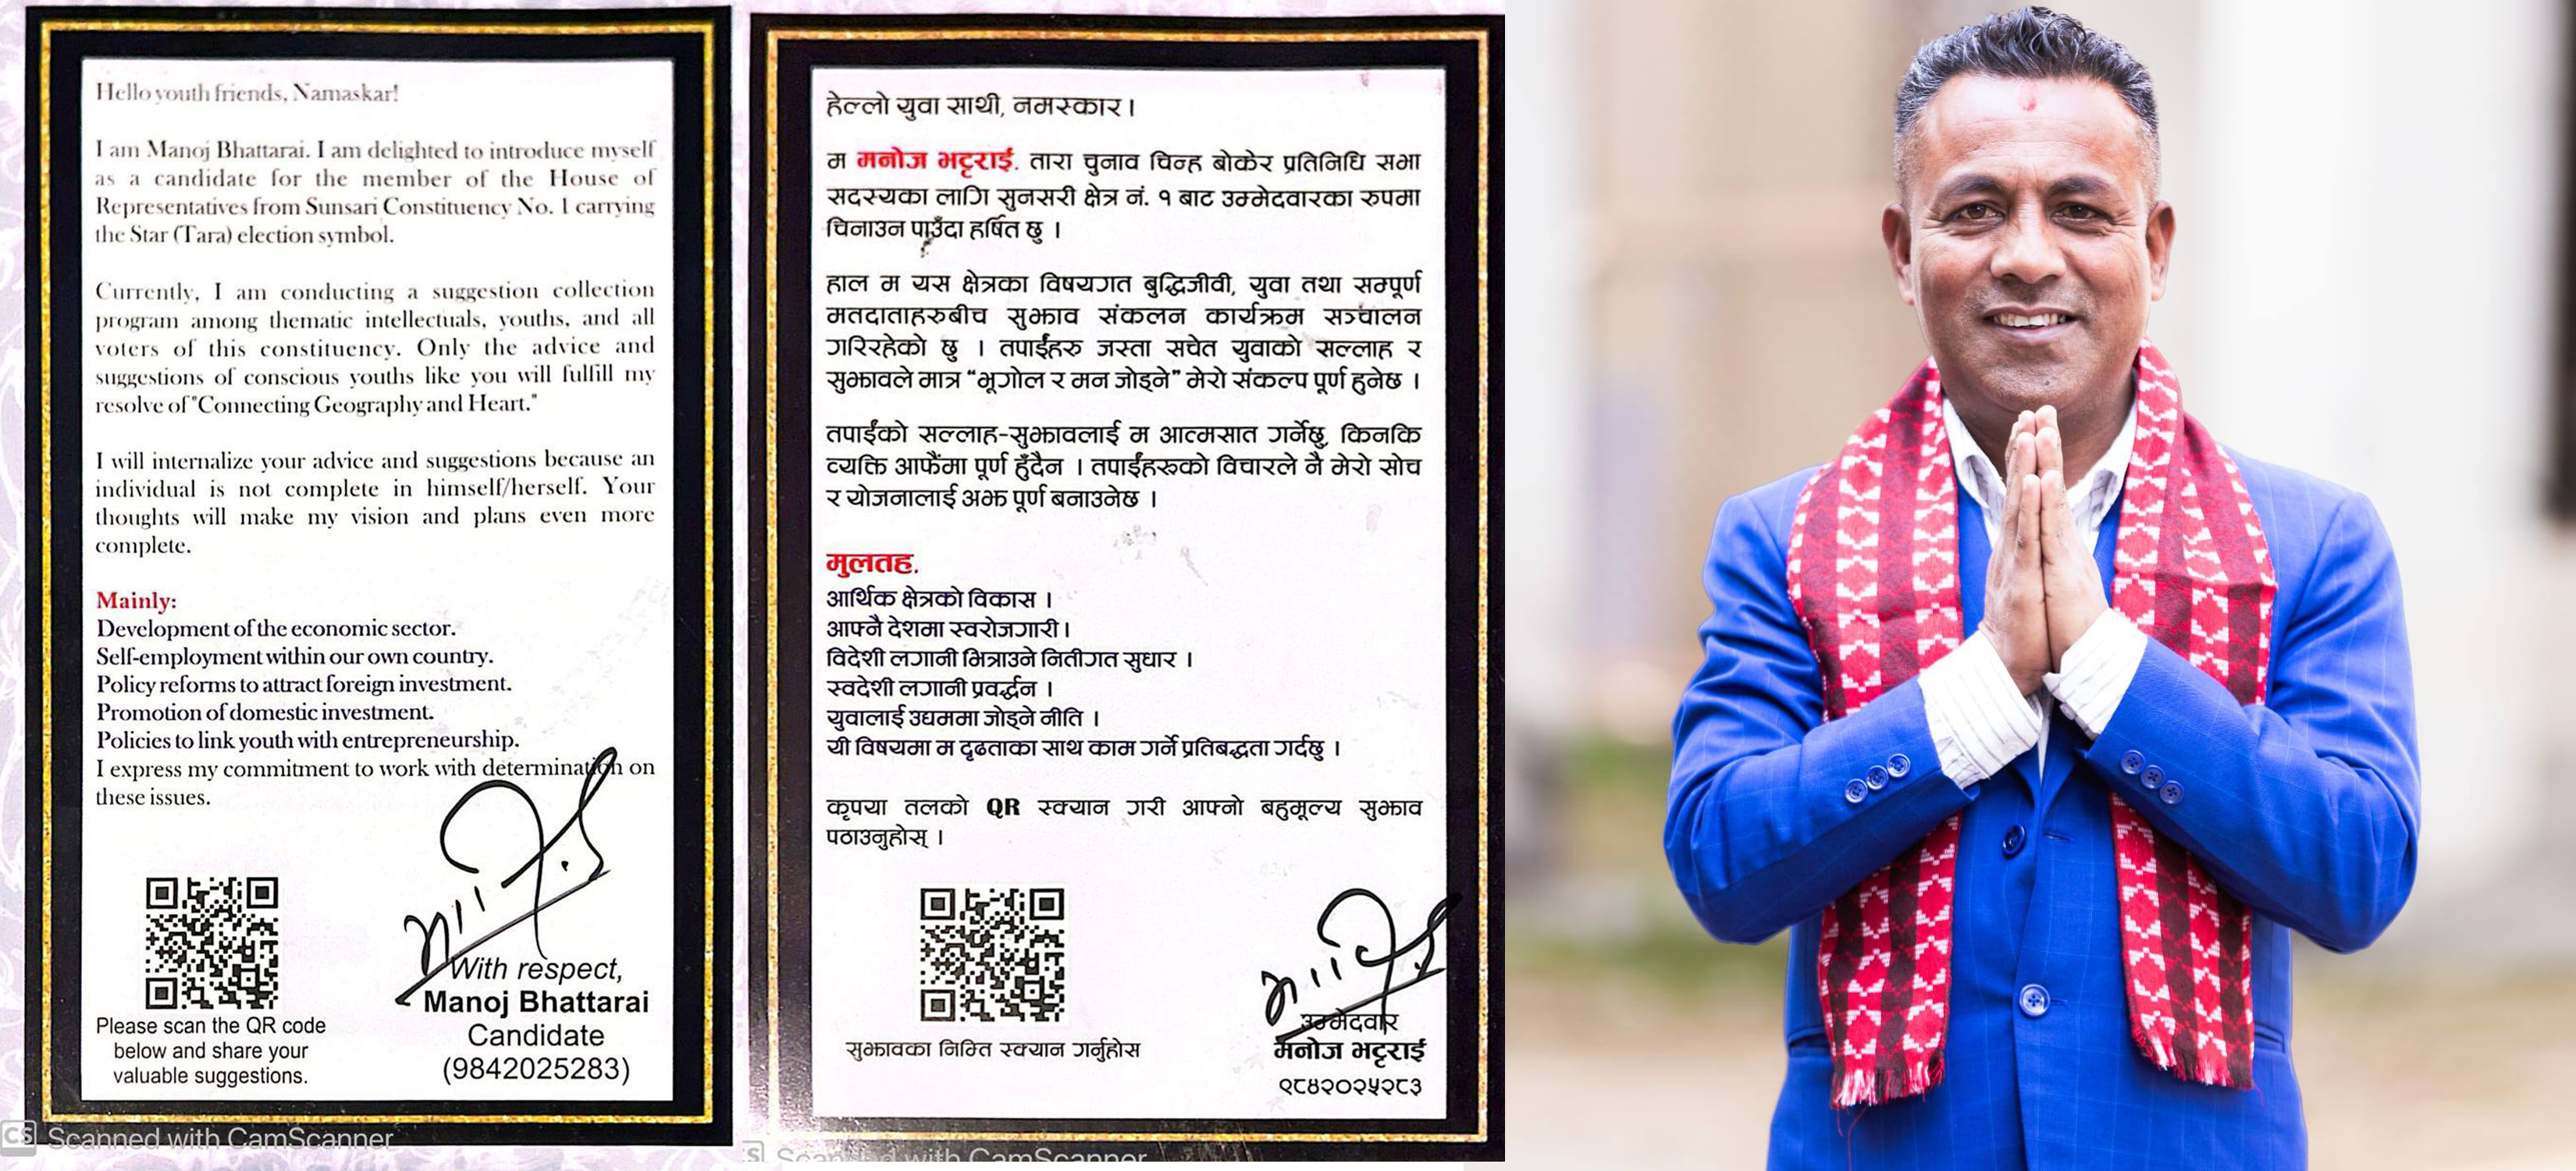 Hello youth friends, Namaskar!
I am Manoj Bhattarai. I am delighted to introduce myself
as a candidate for the member of the House of
Representatives from Sunsari Constituency No. 1 carrying
the Star (Tara) election symbol.
Currently, I am conducting a suggestion collection
program among thematic intellectuals, youths, and all
voters of this constituency. Only the advice and
suggestions of conscious youths like you will fulfill my
resolve of "Connecting Geography and Heart."
I will internalize your advice and suggestions because an
individual is not complete in himself/herself. Your
thoughts will make my vision and plans even more
complete.
Mainly:
Development of the economic sector.
Self-employment within our own country.
Policy reforms to attract foreign investment.
Promotion of domestic investment.
Policies to link youth with entrepreneurship.
I express my commitment to work with determination on
these issues.
Please scan the QR code
below and share your
valuable suggestions.
With respect,
Manoj Bhattarai
Candidate
(9842025283)
CS Scanned with CamScanner
हेल्लो युवा साथी, नमस्कार ।
म मनोज भट्टराई. तारा चुनाव चिन्ह बोकेर प्रतिनिधि सभा
सदस्यका लागि सुनसरी क्षेत्र नं. १ बाट उम्मेदवारका रुपमा
चिनाउन पाउँदा हर्षित छु ।
हाल म यस क्षेत्रका विषयगत बुद्धिजीवी, युवा तथा सम्पूर्ण
मतदाताहरुबीच सुझाव संकलन कार्यक्रम सञ्चालन
गरिरहेको छु । तपाईंहरु जस्ता सचेत युवाको सल्लाह र
सुझावले मात्र “भूगोल र मन जोड्ने” मेरो संकल्प पूर्ण हुनेछ ।
तपाईंको सल्लाह-सुझावलाई म आत्मसात गर्नेछु, किनकि
व्यक्ति आफैंमा पूर्ण हुँदैन । तपाईंहरुको विचारले नै मेरो सोच
र योजनालाई अझ पूर्ण बनाउनेछ ।
मुलतह.
आर्थिक क्षेत्रको विकास ।
आफ्नै देशमा स्वरोजगारी ।
विदेशी लगानी भित्राउने नितीगत सुधार ।
स्वदेशी लगानी प्रवर्द्धन ।
युवालाई उद्यममा जोड्ने नीति ।
यी विषयमा म दृढताका साथ काम गर्ने प्रतिबद्धता गर्दछु ।
कृपया तलको QR स्क्यान गरी आफ्नो बहुमूल्य सुझाव
पठाउनुहोस् ।
सुझावका निम्ति स्क्यान गर्नुहोस
उम्मेदवार
मनोज भट्टराई
९८४२०२५२८३
Scanned with CamScanner